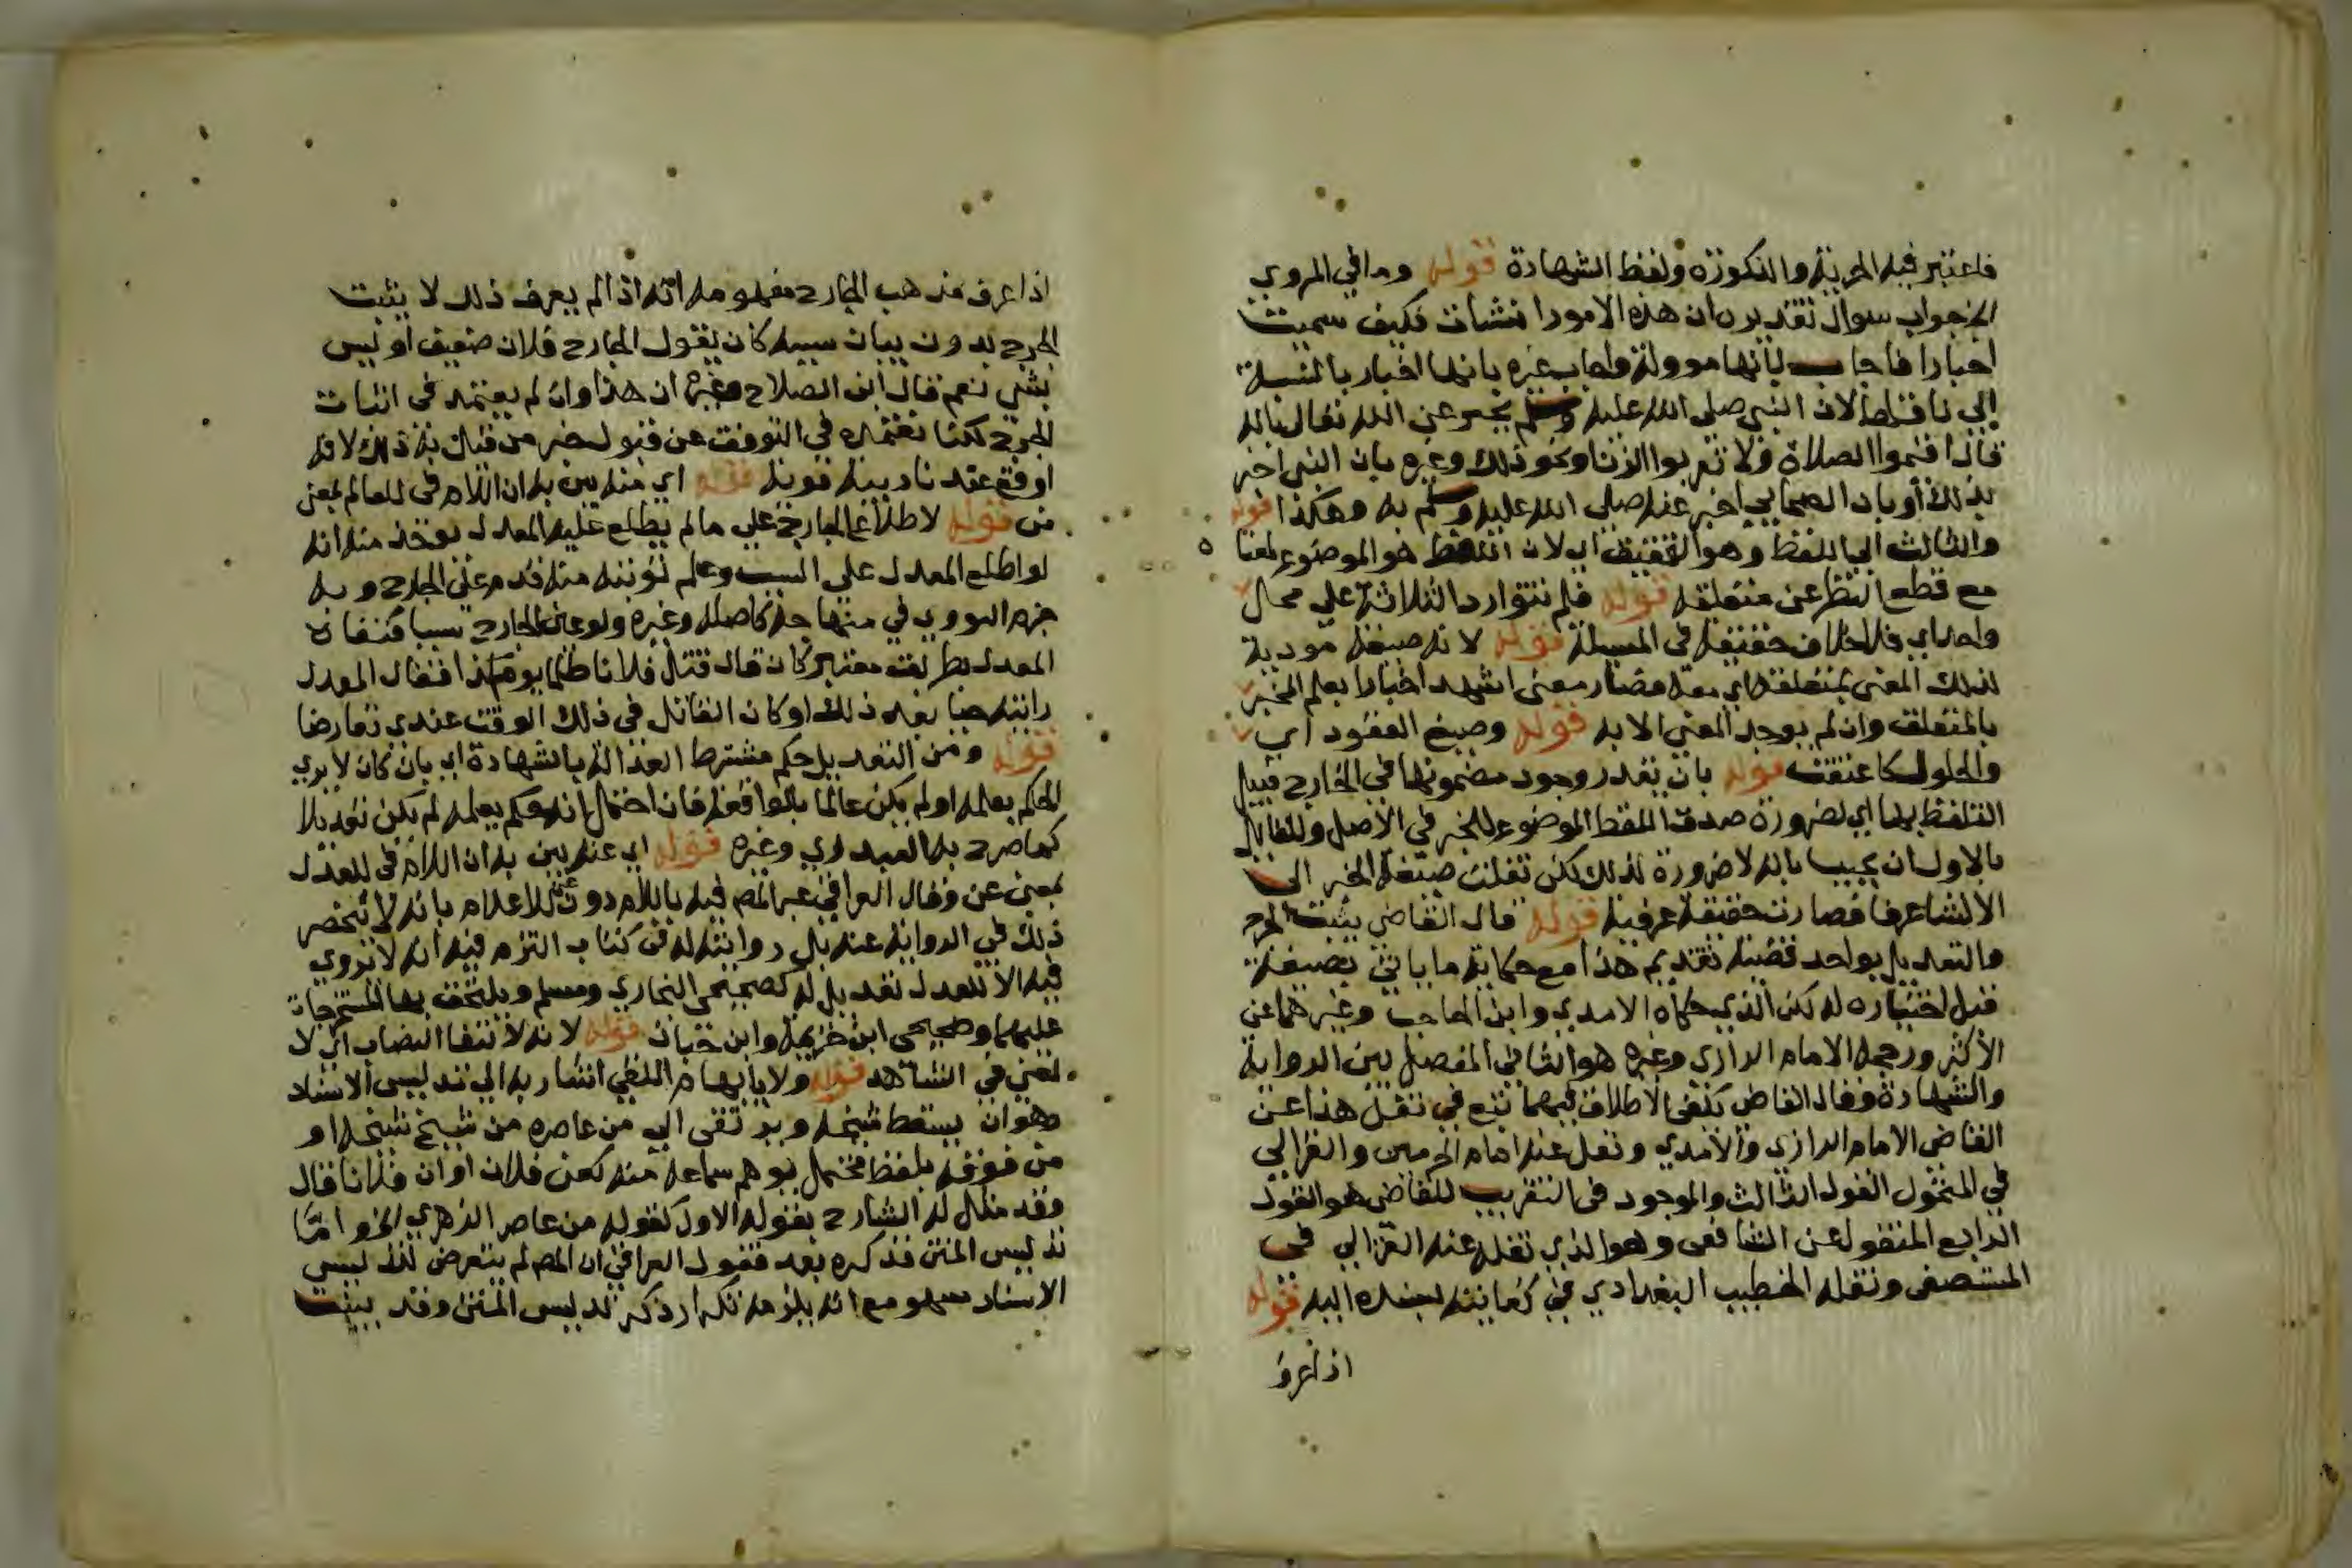 فاعتبر فيه الحرية والذكورة ولفظ الشهادة قوله وما في المروي
الخ جواب سوال تقديره ان هذه الامور انشات فكيف سميت
اخبارا فاجاب بانها موولة واجاب غيره بانها اخبار بالنسبة
الي ناقلها لان النبي صلى الله عليه وسلم يخبر عن الله تعالى بانه
قال اقيموا الصلاة ولا تقربوا الزنا ونحو ذلك وغيره بان النبي اخبر
بذلك او بان الصحابي اخبر عنه صلى الله عليه وسلم به وهكذا قوله
والثالث الي اللفظ وهو التحقيق اي لان اللفظ هو الموضوع لمعنا
مع قطع النظر عن متعلقه قوله فلم تتوارد الثلاثة على محل
واحد اي فلا خلاف حقيقة في المسيلة قوله لانه صيغة مودية
لذلك المعنى بمتعلقه اي معه فصار معنى اشهد اخبارا بعلم المخبر
بالمتعلق وان لم يوجد المعنى الا به قوله وصيغ العقود اي
والحلول كاعتقت قوله بان يقدر وجود مضمونها في الخارج قبيل
التلفظ بها اي لضرورة صدق اللفظ الموضوع للخبر في الاصل وللقايل
بالاول ان يجيب بانه لا ضرورة لذلك لكن نقلت صيغة الخبر الى
الانشا عرفا فصارت حقيقة عرفية قوله قال القاضي يثبت الجرح
والتعديل بواحد قضية تقديم هذا مع حكاية ما ياتي بصيغة
قيل اختياره له لكن الذي حكاه الامدي وابن الحاجب وغيرهما عن
الاكثر ورجحه الامام الرازي وغيره هو الثاني المفصل بين الرواية
والشهادة وقال القاضي يكفي الاطلاق فيهما تبع في نقل هذا عن
القاضي الامام الرازي والامدي ونقل عنه امام الحرمين والغزالي
في المنخول القول الثالث والموجود في التقريب للقاضي هو القول
الرابع المنقول عن الشافعي وهو الذي نقله عنه الغزالي في
المستصفى ونقله الخطيب البغدادي في كفايته بسنده اليه قوله
اذا عرف
اذا عرف مذهب الجارح مفهومه انه اذا لم يعرف ذلك لا يثبت
الجرح بدون بيان سببه كان يقول الجارح فلان ضعيف او ليس
بشي نعم قال ابن الصلاح وغيره ان هذا وان لم يعتمد في اثبات
الجرح لكنا نعتمده في التوقف عن قبول خبر من قيل فيه ذلك لانه
اوقع عندنا ريبة قوية قوله اي منه بين به ان اللام في للعالم بمعنى
من قوله لاطلاع الجارح على ما لم يطلع عليه المعدل يوخذ منه انه
لو اطلع المعدل على السبب وعلم توبته منه قدم على الجارح وبه
جزم النووي في منهاجه كاصله وغيره ولو عين الجارح سببا فنفاه
المعدل بطريق معتبر كان قال قتل فلانا ظلما يوم كذا فقال المعدل
رايته حيا بعد ذلك او كان القاتل في ذلك الوقت عندي تعارضا
قوله ومن التعديل حكم مشترط العدالة بالشهادة اي بان كان لا يري
الحكم بعلمه او لم يكن عالما بالواقعة فان احتمل انه حكم بعلمه لم يكن تعديلا
كما صرح به العبدري وغيره قوله اي عنه بين به ان اللام في للعدل
بمعنى عن وقال العراقي عبر المص فيه باللام دون عن للاعلام بانه لا ينحصر
ذلك في الرواية عنه بل روايته له في كتاب التزم فيه انه لا يروي
فيه الا للعدل تعديل له كصحيحي البخاري ومسلم ويلتحق بها المستخرجات
عليهما وصحيحي ابن خزيمة وابن حبان قوله لانه لا انتفا النصاب اي لا
لمعنى في الشاهد قوله ولا بايهام اللقي اشار به الي تدليس الاسناد
وهو ان يسقط شيخه ويرتقي الي من عاصره من شيخ شيخه او
من فوقه بلفظ محتمل يوهم سماعه منه كعن فلان او ان فلانا قال
وقد مثل له الشارح بقوله الاول كقوله من عاصر الزهري الخ واما
تدليس المتن فذكره بعد فقول العراقي ان المص لم يتعرض لتدليس
الاسناد سهو مع انه يلزمه تكرار ذكر تدليس المتن وقد بينت